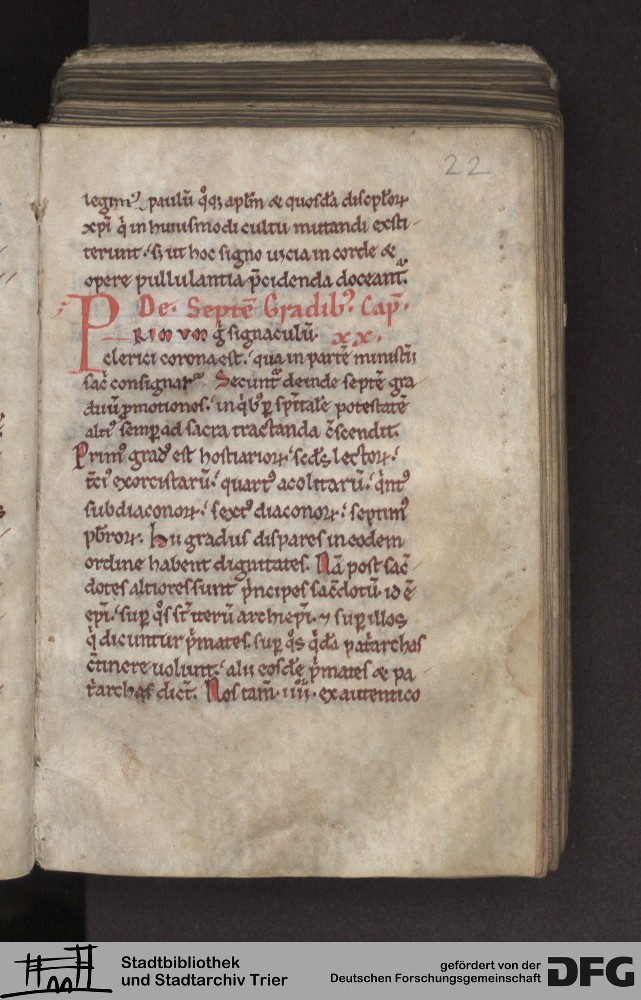 22
legim᷒ paulū q̊q; aplm̄ & quosdā disciplor̄ꝝ
xp̄i q̇ in huiusmodi cultu mutandi exsti
terunt. s; ut hoc signo uicia in corde &
opere pullulantia p̄cidenda doceant᷒.
De. Septē Gradib᷒. Cap̄.
PRIMUM g̊ signaculū. xx.
clerici corona est. qua in partē ministīī
sac̄ consignat᷒. Secunt᷒ deinde septē gra
duū ꝓmotiones. in q̇b᷒ ꝑ sp̄itale potestatē
alti᷒ semꝑ ad sacra tractanda c̄scendit.
Prim᷒ grad᷒ est hostiarioꝝ. scd̄s lectoꝝ.
t̄ci᷒ exorcistarū. quart᷒ acolitarū. q̇nt᷒
subdiaconoꝝ. sext᷒ diaconoꝝ. septim᷒
pb̄roꝝ. Hii gradus dispares in eodem
ordine habent dignitates. Nā post sac̄
dotes altiores sunt p̄ncipes sac̄dotū. id ē
ep̄i. suꝑ q̊s st̄ iterū archiep̄i. ⁊ suꝑ illos
q̇ dicuntur ṗmates. suꝑ q̊s q̇dā pat̄archas
c̄tinere uolunt. alii eosdē ṗmates & pa
t̄archas dic̄t. Nos tam̄ iiii. ex autentico
Stadtbibliothek
und Stadtarchiv Trier
gefördert von der
Deutschen Forschungsgemeinschaft
DFG